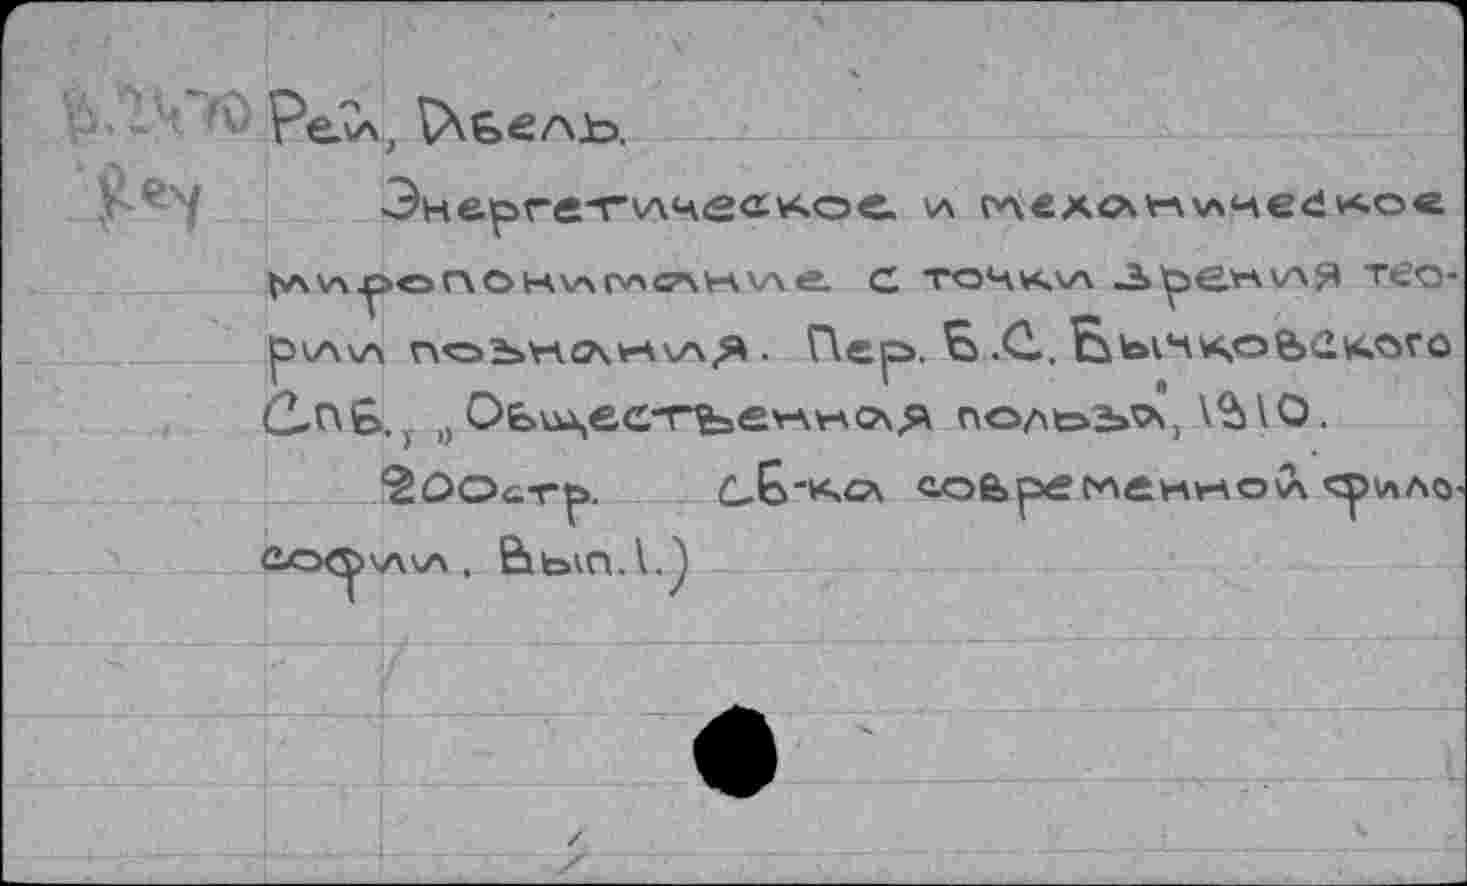 Рей, Абель.
Rey
Энергетическое и механическое
миропонимание с точки зрения тео-
рии познания. Пер. Б.С. Бычковского
Спб., „Общественная польза", 1910.
200стр. (Б-ка современной фило-
софии. Вып. 1.)